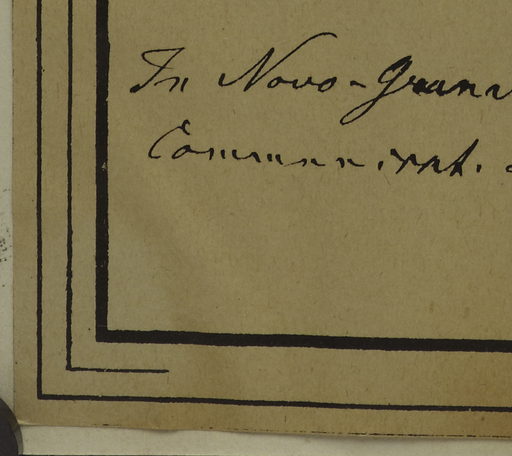 In Novo-Gran
Communicat.